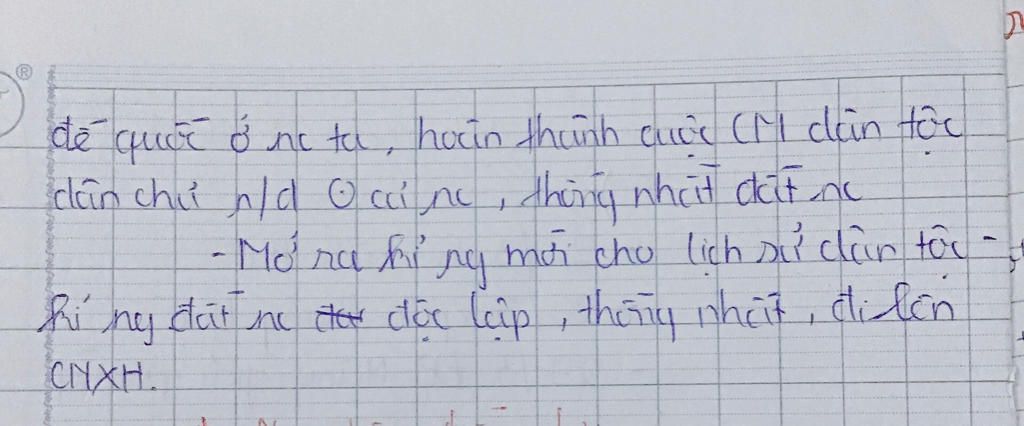 đế quốc ở nc ta, hoàn thành cuộc CM dân tộc
dân chủ n/d ⊙ cả nc, thống nhất đất nc
- Mở ra kỉ ng mới cho lịch sử dân tộc -
kỉ ng đất nc độc lập, thống nhất, đi lên
CNXH.